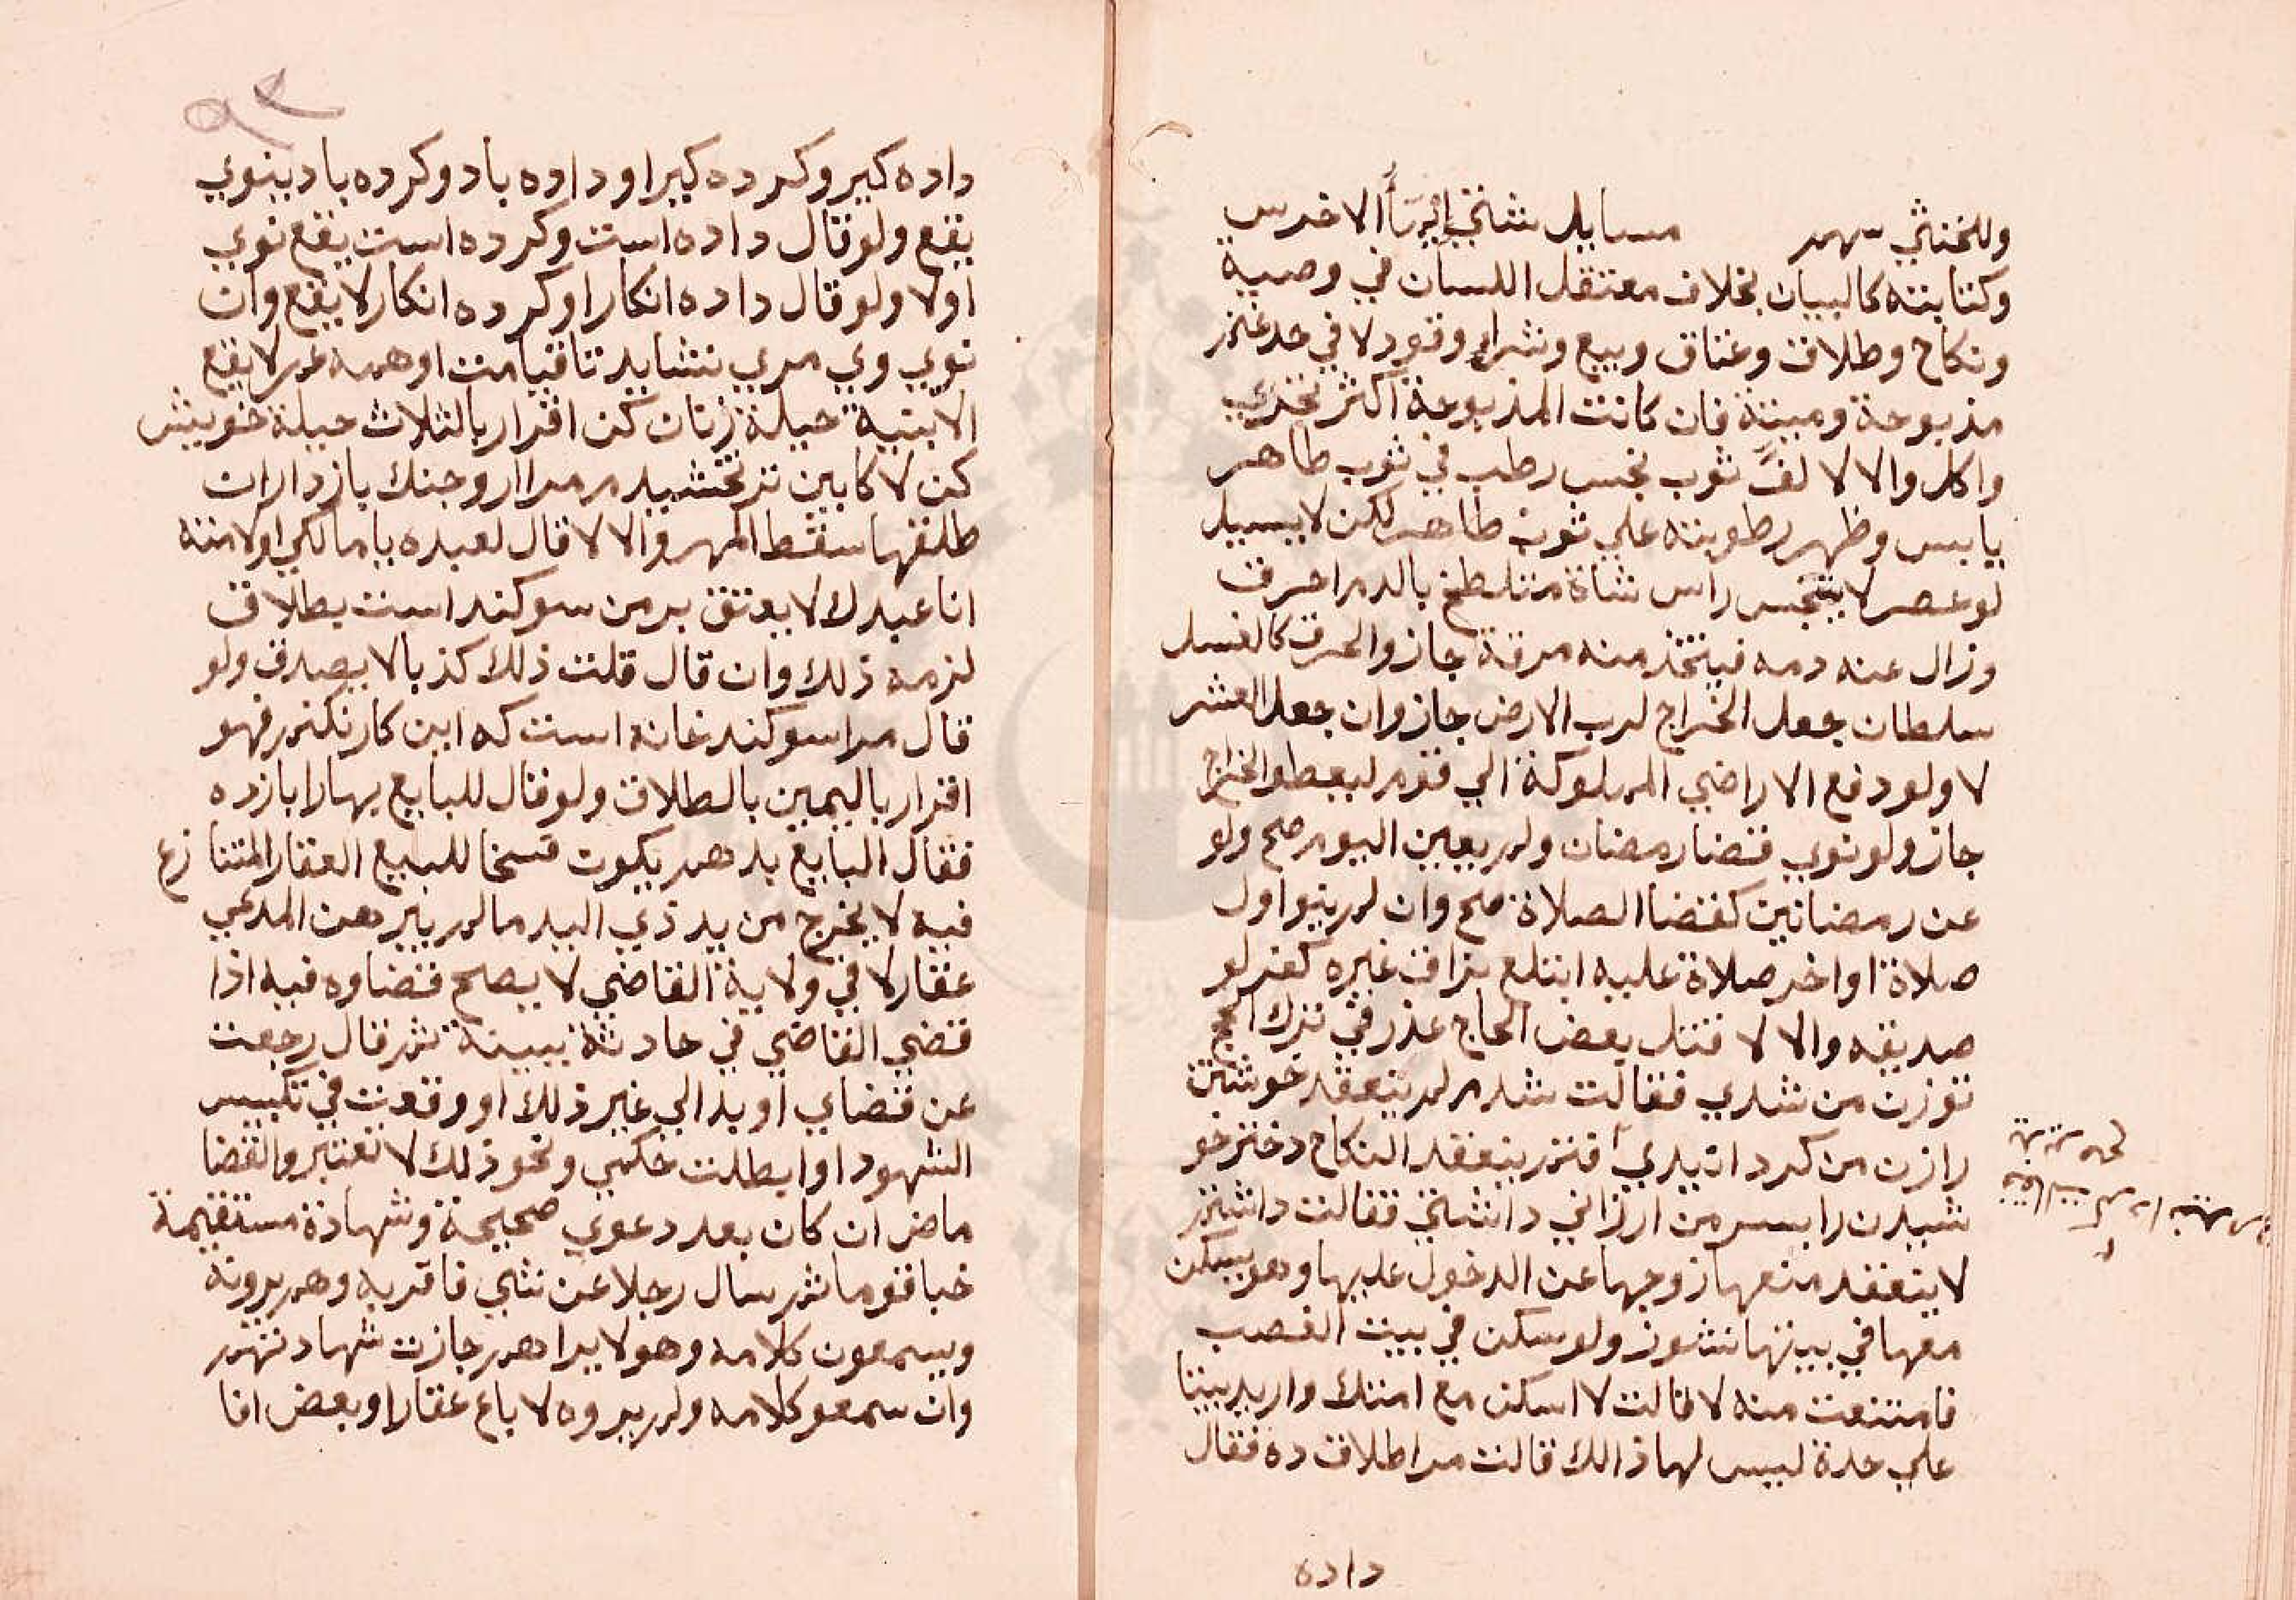 وللخنثي سهم مسايل شتي إيمأ الاخرس
وكتابته كالبيان بخلاف معتقل اللسان في وصية
ونكاح وطلاق وعتاق وبيع وشراء وقود لا في حد غنم
مذبوحة وميتة فان كانت المذبوحة اكثر تحري
واكل والا لا لف ثوب نجس رطب في ثوب طاهر
يابس وظهر رطوبته علي ثوب طاهر لكن لا يسيل
لو عصر لا يتنجس راس شاة متلطخ بالدم احرق
وزال عنه دمه فيتخذ منه مرقة جاز والحرق كالغسل
سلطان جعل الخراج لرب الارض جاز وان جعل العشر
لا ولو دفع الاراضي المملوكة الي قوم ليعطوا الخراج
جاز ولو نوي قضا رمضان ولم يعين اليوم صح ولو
عن رمضانين كقضا الصلاة صح وان لم ينو اول
صلاة او اخر صلاة عليه ابتلع بزاق غيره كفر لو
صديقه والا لا قتل بعض الحاج عذر في ترك الحج
توزن من شدي فقالت شدم لم ينعقد خوشتن
رازن من كرد انيدي فنزر ينعقد النكاح دختر خو
شيدن رابسر من ارزاني داشتي فقالت داشتم
لا ينعقد منعها زوجها عن الدخول عليها وهو يسكن
معها في بيتها نشوز ولو سكن في بيت الغصب
فامتنعت منه لا قالت لا اسكن مع امتك واريد بيتا
علي حدة ليس لها ذالك قالت مرا طلاق ده فقال
داده
داده كير وكرده كيرا و داده باد وكرده باد ينوي
يقع ولو قال داده است وكرده است يقع نوي
اولا ولو قال داده انكار او كرده انكار لا يقع وان
نوي وي مري نشايد تا قيامت او همه عمر لا يقع
الا بنية حيلة زنان كن اقرار بالثلاث حيلة خويش
كن لا كابين تر بخشيدم مرا از وجنك بازدار ان
طلقها سقط المهر والا لا قال لعبده يا مالكي او لامته
انا عبدك لا يعتق بر من سوكند است بطلاق
لزمه ذلك وان قال قلت ذلك كذبا لا يصدق ولو
قال مرا سوكند خانه است كه اين كار نكنم فهو
اقرار باليمين بالطلاق ولو قال للبايع بها را بازده
فقال البايع بدهم يكون فسخا للبيع العقار المتنازع
فيه لا يخرج من يد ذي اليد مالم يبرهن المدعي
عقار لا في ولاية القاضي لا يصح قضاوه فيه اذا
قضي القاضي في حادثة ببينة ثم قال رجعت
عن قضاي او بدا لي غير ذلك او وقعت في تلبيس
الشهود او ابطلت حكمي ونحو ذلك لا تعتبر والقضا
ماض ان كان بعد دعوي صحيحة وشهادة مستقيمة
خبا قوما ثم سال رجلا عن شي فاقر به وهم يرونه
ويسمعون كلامه وهو لا يراهم جازت شهادتهم
وان سمعو كلامه ولم يروه لا باع عقارا وبعض اقا